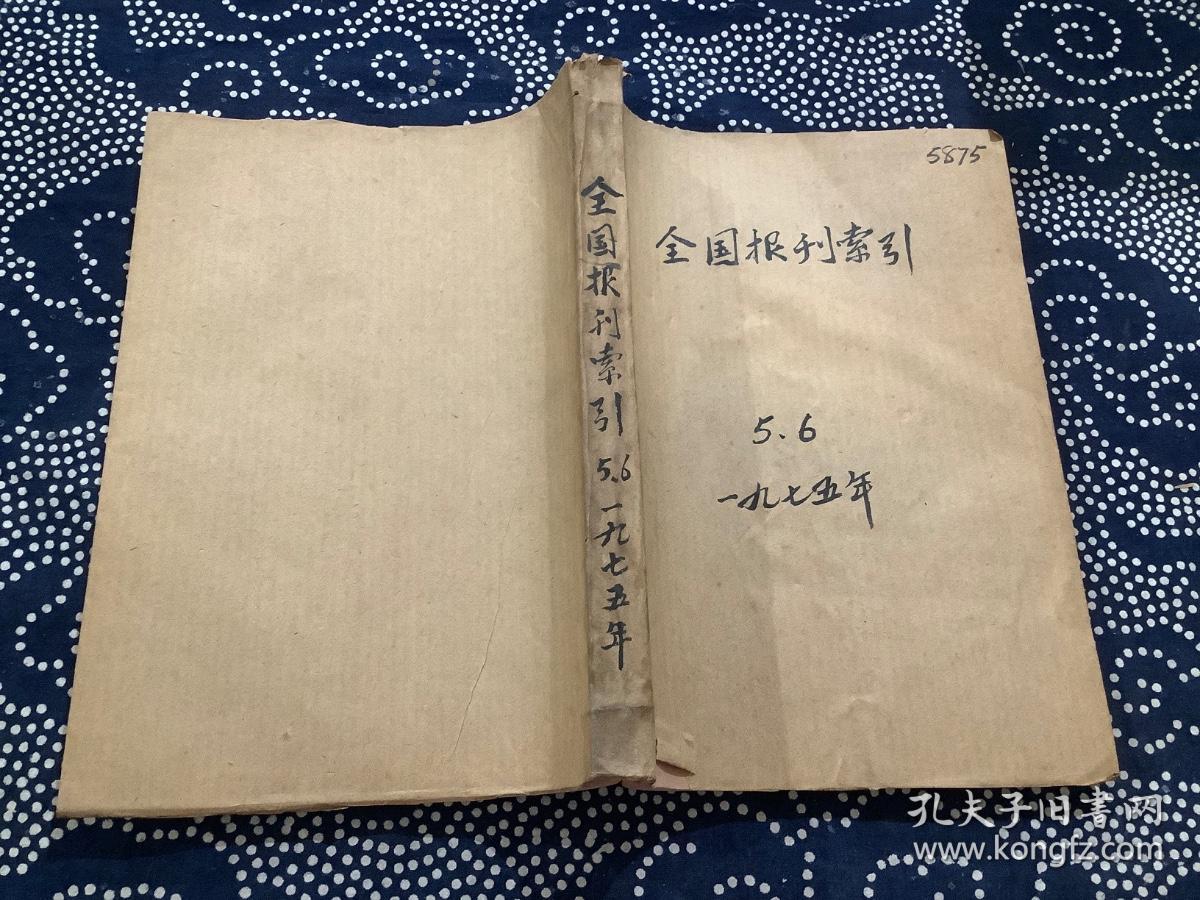 全国报刊索引 5.6 一九七五年
5875
全国报刊索引
5.6
一九七五年
孔夫子旧書网
www.kongfz.com